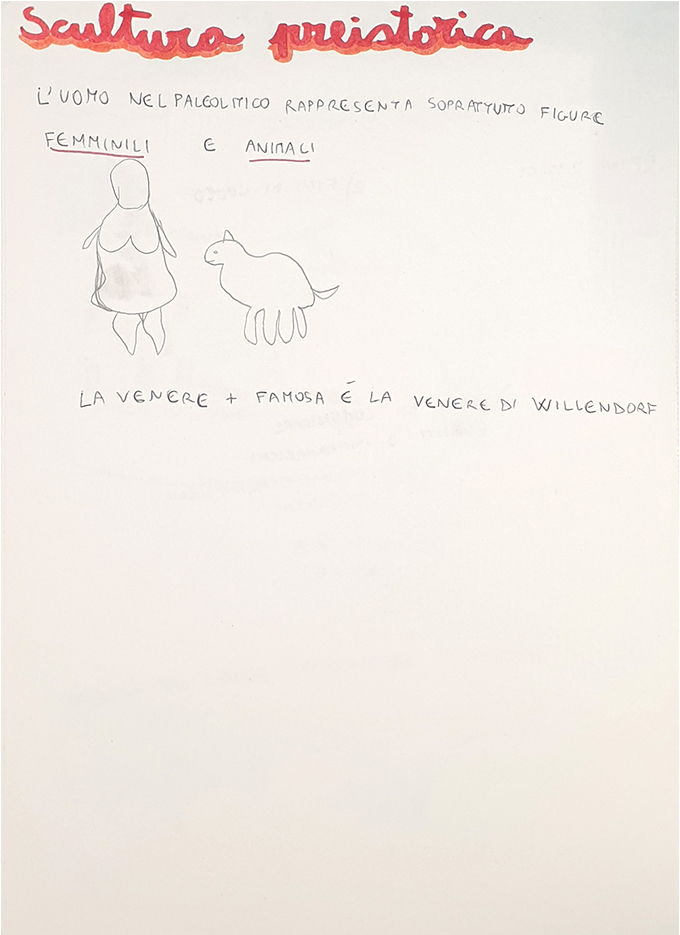 Scultura preistorica
L'UOMO NEL PALEOLITICO RAPPRESENTA SOPRATTUTTO FIGURE
FEMMINILI E ANIMALI
LA VENERE + FAMOSA É LA VENERE DI WILLENDORF